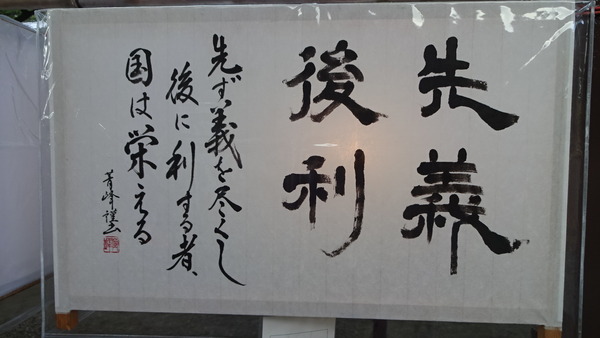 先義
後利
先ず義を尽くし
後に利する者、
国は栄える
青峰謹書